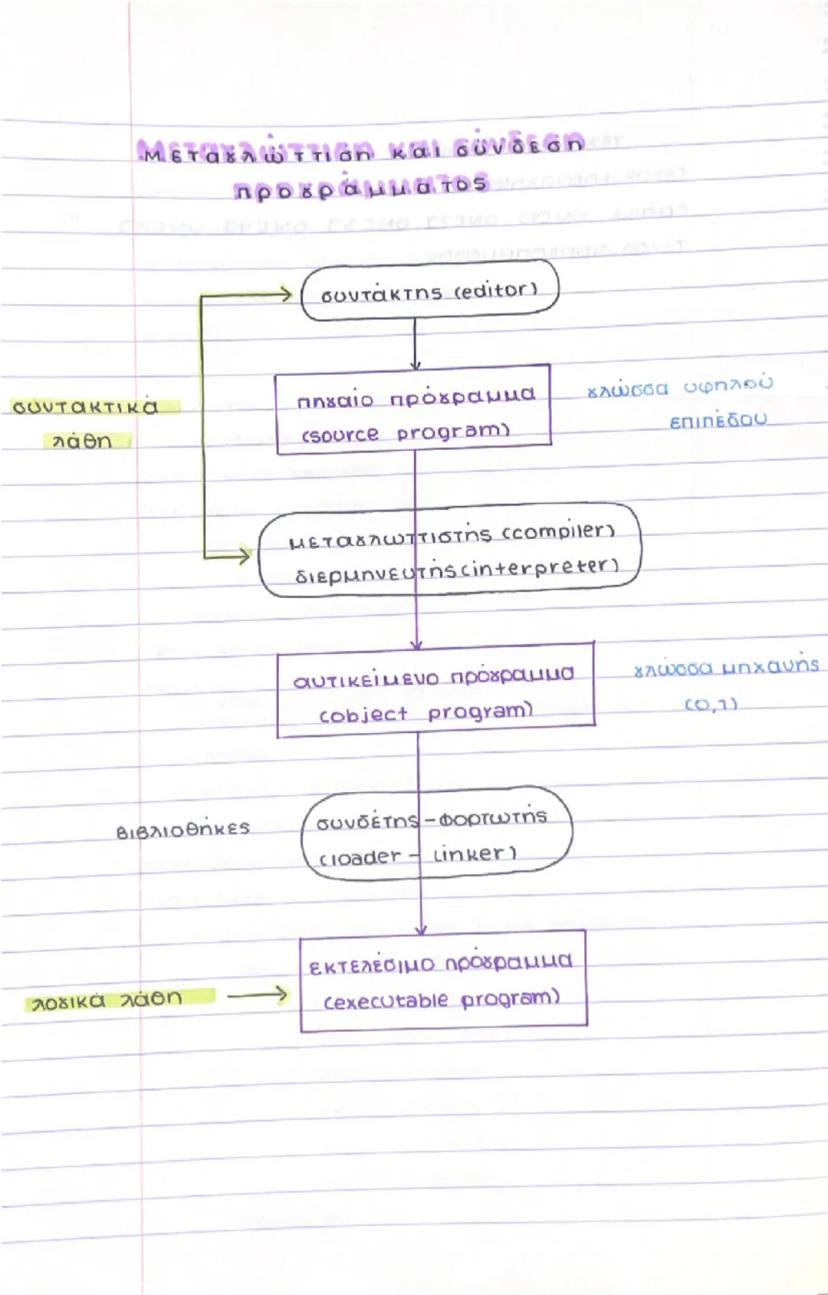 Μεταγλώττιση και σύνδεση
προγράμματος
συντάκτης (editor)
πηγαίο πρόγραμμα
(source program)
γλώσσα υψηλού
επιπέδου
συντακτικά
λάθη
μεταγλωττιστής (compiler)
διερμηνευτής (interpreter)
αντικείμενο πρόγραμμα
(object program)
γλώσσα μηχανής
(0,1)
βιβλιοθήκες
συνδέτης-φορτωτής
(loader - linker)
εκτελέσιμο πρόγραμμα
(executable program)
λογικά λάθη